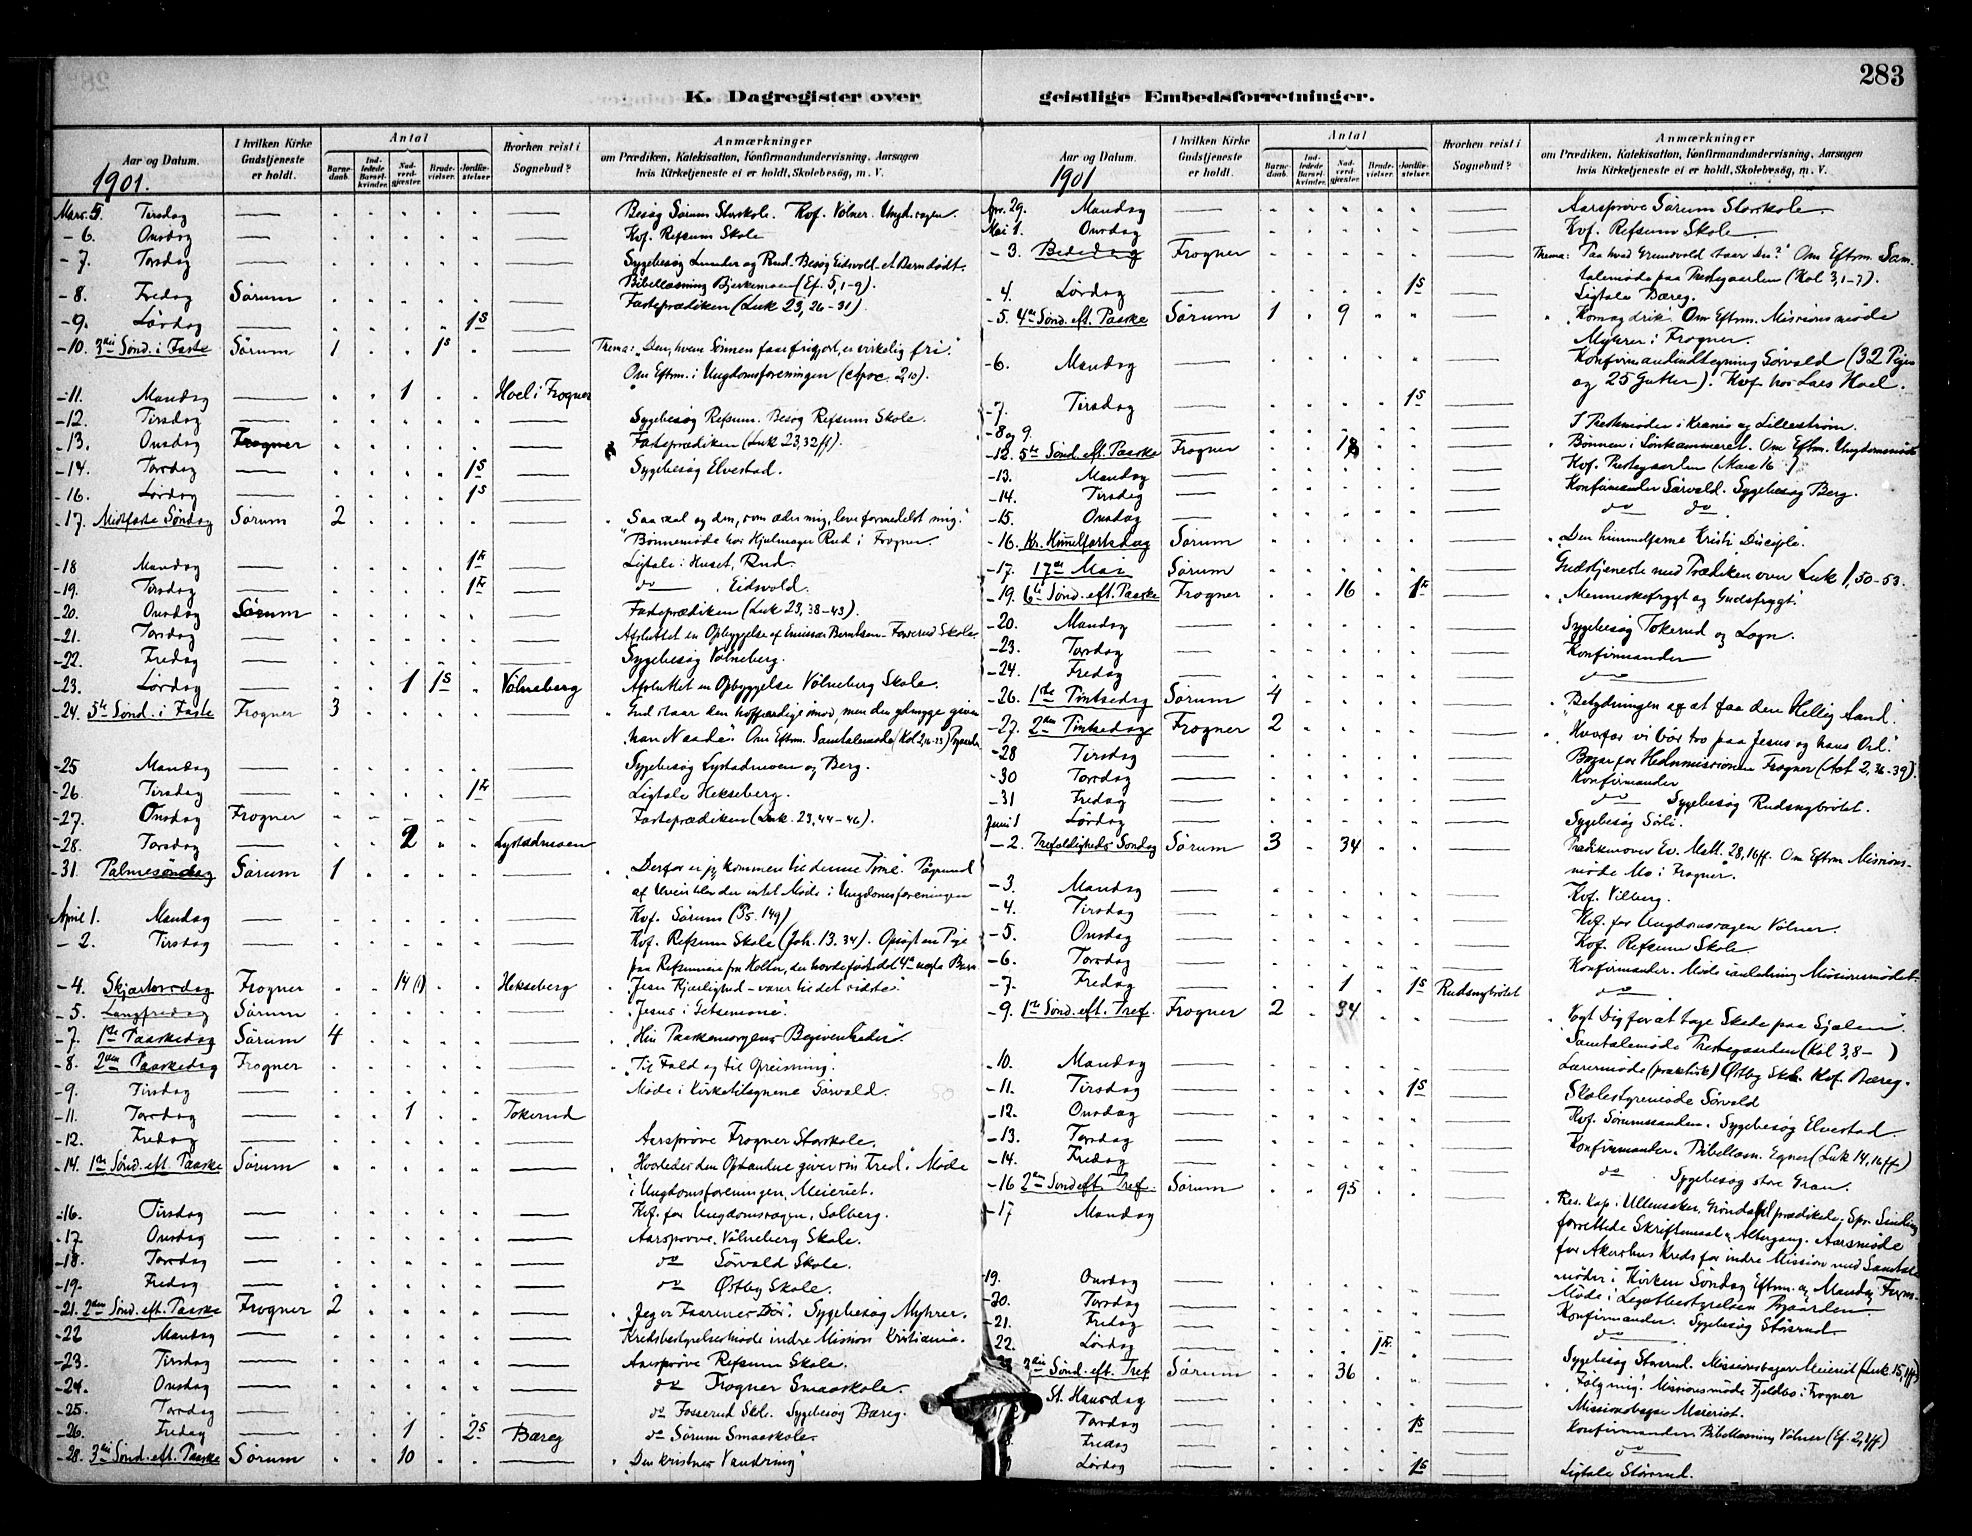 283
K. Dagregister over geistlige Embedsforretninger.
Aar og Datum. I hvilken Kirke Gudstjeneste er holdt. Antal Barnedaab. Indledede Barselkvinder. Nadverdgjæster. Brudevielser. Jordfæstelser. Hvorhen reist i Sognebud? Anmærkninger om Prædiken, Katekisation, Konfirmandundervisning, Aarsagen hvis Kirketjeneste ei er holdt, Skolebesøg, m. V.
1901.
Mars 5. Tirsdag Besøg Sørum Storskole. Kof. Vølner. Ungd.sagen.
- 6. Onsdag Kof. Refsum Skole
- 7. Torsdag Sygebesøg Lunder og Rud. Besøg Eidsvold et Barn dødt.
Bibellæsning Bjerkemoen (Ef. 5, 1-9).
- 8. Fredag Sørum Fasteprædiken (Luk 23, 26-31)
- 9. Lørdag 1 S
- 10. 3die Sønd. i Faste Sørum 1 1 S Thema: "Den, hvem Sønnen faar frigjort, er virkelig fri".
Om Eftm. i Ungdomsforeningen (Apoc. 2,10).
- 11. Mandag 1 Hoel i Frogner
- 12. Tirsdag Sygebesøg Refsum. Besøg Refsum Skole.
- 13. Onsdag Frogner Fasteprædiken (Luk 23, 32ff).
- 14. Torsdag 1 S Sygebesøg Elvestad.
- 16. Lørdag 1 S
- 17. Midtfaste Søndag Sørum 2 "Saa skal og den, som æder mig, leve formedelst mig."
Bønnemøde hos Hjulmager Rud i Frogner.
- 18 Mandag 1 k Ligtale i Huset, Rud.
- 19. Tirsdag 1 k do Eidsvold.
- 20. Onsdag Sørum Fasteprædiken (Luk 23, 38-43).
- 21. Torsdag Afsluttet en Opbyggelse af Emissær Berntsen Fosserud Skole.
- 22. Fredag Sygebesøg Vølneberg.
- 23. Lørdag 1 1 S Vølneberg Afsluttet en Opbyggelse Vølneberg Skole.
- 24. 5te Sønd. i Faste Frogner 3 "Gud staar den hoffærdige imod, men den ydmyge giver
han Naade". Om Eftm. Samtalemøde (Kol 2,16-23) Pgaarden
- 25 Mandag Sygebesøg Lystadmoen og Berg.
- 26. Tirsdag 1 k Ligtale Hekseberg.
- 27. Onsdag Frogner Fasteprædiken (Luk. 23, 44-46).
- 28. Torsdag 2 Lystadmoen
- 31. Palmesøndag Sørum 1 "Derfor er jeg kommen til denne Time". Paagrund
af Uveir blev der intet Møde i Ungdomsforeningen
April 1. Mandag Kof. Sørum (Ps. 149)
- 2. Tirsdag Kof. Refsum Skole (Joh. 13. 34). Opsøgt en Pige
- 4. Skjærtorsdag Frogner 14 (1) Hekseberg "Jesu Kjærlighed - varer til det sidste."
- 5. Langfredag Sørum "Jesus i Getsemane".
- 7. 1ste Paaskedag Sørum 4 "Hin Paaskemorgens Begivenheder".
- 8. 2den Paaskedag Frogner "Til Fald og til Opreisning."
- 9. Tirsdag Møde i Kirketilsynene Sørvald.
- 11. Torsdag 1 Tokerud
- 12. Fredag Aarsprøve Frogner Storskole.
- 14. 1ste Sønd. eft. Paaske Sørum "Hvorledes den Opstandne giver sin Fred". Møde
i Ungdomsforeningen, Meieriet.
- 16. Tirsdag Kof. for Ungdomssagen, Solberg.
- 17. Onsdag Aarsprøve. Vølneberg Skole.
- 18. Torsdag do Sørvald Skole.
- 19. Fredag do Østby Skole.
- 21. 2den Sønd. eft. Paaske Frogner 2 "Jeg er Faarenes Dør". Sygebesøg Myhrer.
- 22 Mandag Kredsbestyrelsesmøde indre Mission Kristiania.
- 23. Tirsdag Aarsprøve Refsum Skole.
- 24. Onsdag do Frogner Smaaskole.
- 25. Torsdag do Fosserud Skole. Sygebesøg Bæreg.
- 26. Fredag 1 2 S Bæreg do Sørum Smaaskole.
- 28. 3die Sønd. eft. Paaske Sørum 10 "Den kristnes Vandring"
Aar og Datum. I hvilken Kirke Gudstjeneste er holdt. Antal Barnedaab. Indledede Barselkvinder. Nadverdgjæster. Brudevielser. Jordfæstelser. Hvorhen reist i Sognebud? Anmærkninger om Prædiken, Katekisation, Konfirmandundervisning, Aarsagen hvis Kirketjeneste ei er holdt, Skolebesøg, m. V.
1901
Apr. 29. Mandag Aarsprøve Sørum Storskole.
Mai 1. Onsdag Kof. Refsum Skole.
- 3. Bededag Frogner Thema: "Paa hvad Grundvold staar Du?" Om Eftm. Sam-
talemøde paa Prestegaarden (Kol 3, 1-7).
- 4. Lørdag 1 S Ligtale Bæreg.
- 5. 4de Sønd. eft. Paaske Sørum 1 9 "Kom og drik". Om Eftm. Missionsmøde
Myhrer i Frogner.
- 6. Mandag Konfirmandindtegning Sørvald (32 Piger
og 25 Gutter). Kof. hos Lars Hoel.
- 7. Tirsdag 1 S
- 8 og 9. I Prestemøder i Krania og Lillestrøm.
- 12. 5te Sønd. eft. Paaske Frogner 18 "Bønnen i Lønkammeret". Om Eftm. Ungdomsmøde
- 13. Mandag Kof. Prestegaarden (Marc 16 )
- 14. Tirsdag Konfirmander Sørvald. Sygebesøg Berg.
- 15. Onsdag do do
- 16. Kr. Himmelfartsdag Sørum "Den himmelfarne Kristi Disciple".
- 17. 17de Mai Sørum Gudstjeneste med Prædiken over Luk 1, 50-53.
- 19. 6te Sønd. eft. Paaske Frogner 16 1 k "Menneskefrygt og Gudsfrygt".
- 20. Mandag Sygebesøg Tokerud og Logn.
- 23. Torsdag Konfirmander
- 24. Fredag do
- 26. 1ste Pintsedag Sørum 4 "Betydningen af at faa den Hellig Aand".
- 27. 2den Pintsedag Frogner 2 "Hvorfor vi bør tro paa Jesus og hans Ord."
- 28 Tirsdag Bazar for Hedningemissionen Frogner (Act 2, 36-39).
- 30 Torsdag Konfirmander
- 31 Fredag do Sygebesøg Rudsnybrötet.
Juni 1 Lørdag Sygebesøg Sørli.
- 2. Trefoldigheds Søndag Sørum 3 34 Prædiken over Ev. Matt. 28, 16ff. Om Eftm. Missions-
møde Mo i Frogner.
- 3. Mandag Kof. Vilberg.
- 4. Tirsdag Kof. for Ungdomssagen Vølner.
- 5. Onsdag Kof. Refsum Skole
- 6. Torsdag Konfirmander. Møde i anledning Missionsmødet.
- 7. Fredag 1 1 S Rudsnybrötet do
- 9. 1ste Sønd. eft. Tref. Frogner 2 34 "Vogt Dig for at tage Skade paa Sjælen".
Samtalemøde Prestegaarden (Kol 3, 8- )
- 10. Mandag Lærermøde (praktisk) Østby Skole. Kof. Bæreg.
- 11. Tirsdag 1 S Skolestyremøde Sørvald
- 12. Onsdag Kof. Sørumssanden. Sygebesøg Elvestad.
- 13. Torsdag Konfirmander. Bibellæsn. Egner (Luk 14, 16ff)
- 14. Fredag do Sygebesøg store Gran.
- 16 2den Sønd eft. Tref. Sørum 95 Res. Kap. i Ullensaker, Grøndahl prædikede;
- 17 Mandag forrettede Skriftemaal & Altergang. Aarsmøde
for Akershus Kreds for indre Mission med Samtale
møder i Kirken Søndag Eftm. og Mandag Form.
- 19. Onsdag Møde i Legatbestyrelsen Pgaarden
- 20. Torsdag Konfirmander. Sygebesøg Størsrud
- 21. Fredag do
22. Lørdag 1 k
3die Sønd. eft. Tref Sørum 36 "Følg mig". Missionsmøde Fjeldbo i Frogner
St. Hansdag Missionsbazar Meieriet.
Torsdag 1 S Konfirmander. Bibellæsning Vølner (Ef. 2, 1ff)
Fredag do
Lørdag 1 S Ligtale Størsrud.